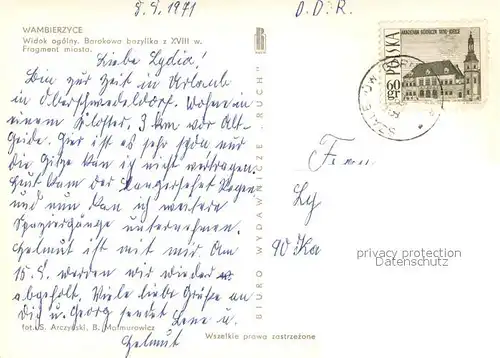 8.8.1971
D.D.R.
WAMBIERZYCE
Widok ogólny. Barokowa bazylika z XVIII w.
Fragment miasta.
Liebe Lydia!
Bin zur Zeit in Urlaub
in Oberschwedeldorf. Wohnen in
einem Kloster, 3 km vor Alt-
heide. Hier ist es sehr schön nur
die Hitze kan ich nicht vertragen.
Heut kam der langersehnte Regen
und nun kan ich weitere
Spaziergänge unternehmen.
Helmut ist mit mir. Am
15.8. werden wir wieder
abgeholt. Viele liebe Grüße an
dich u. Georg sendet Lene u.
Helmut
fot. S. Arczyński, B. Malmurowicz
Wszelkie prawa zastrzeżone
BIURO WYDAWNICZE „RUCH"
POLSKA
60 gr
Ly
90 Ka
privacy protection
Datenschutz